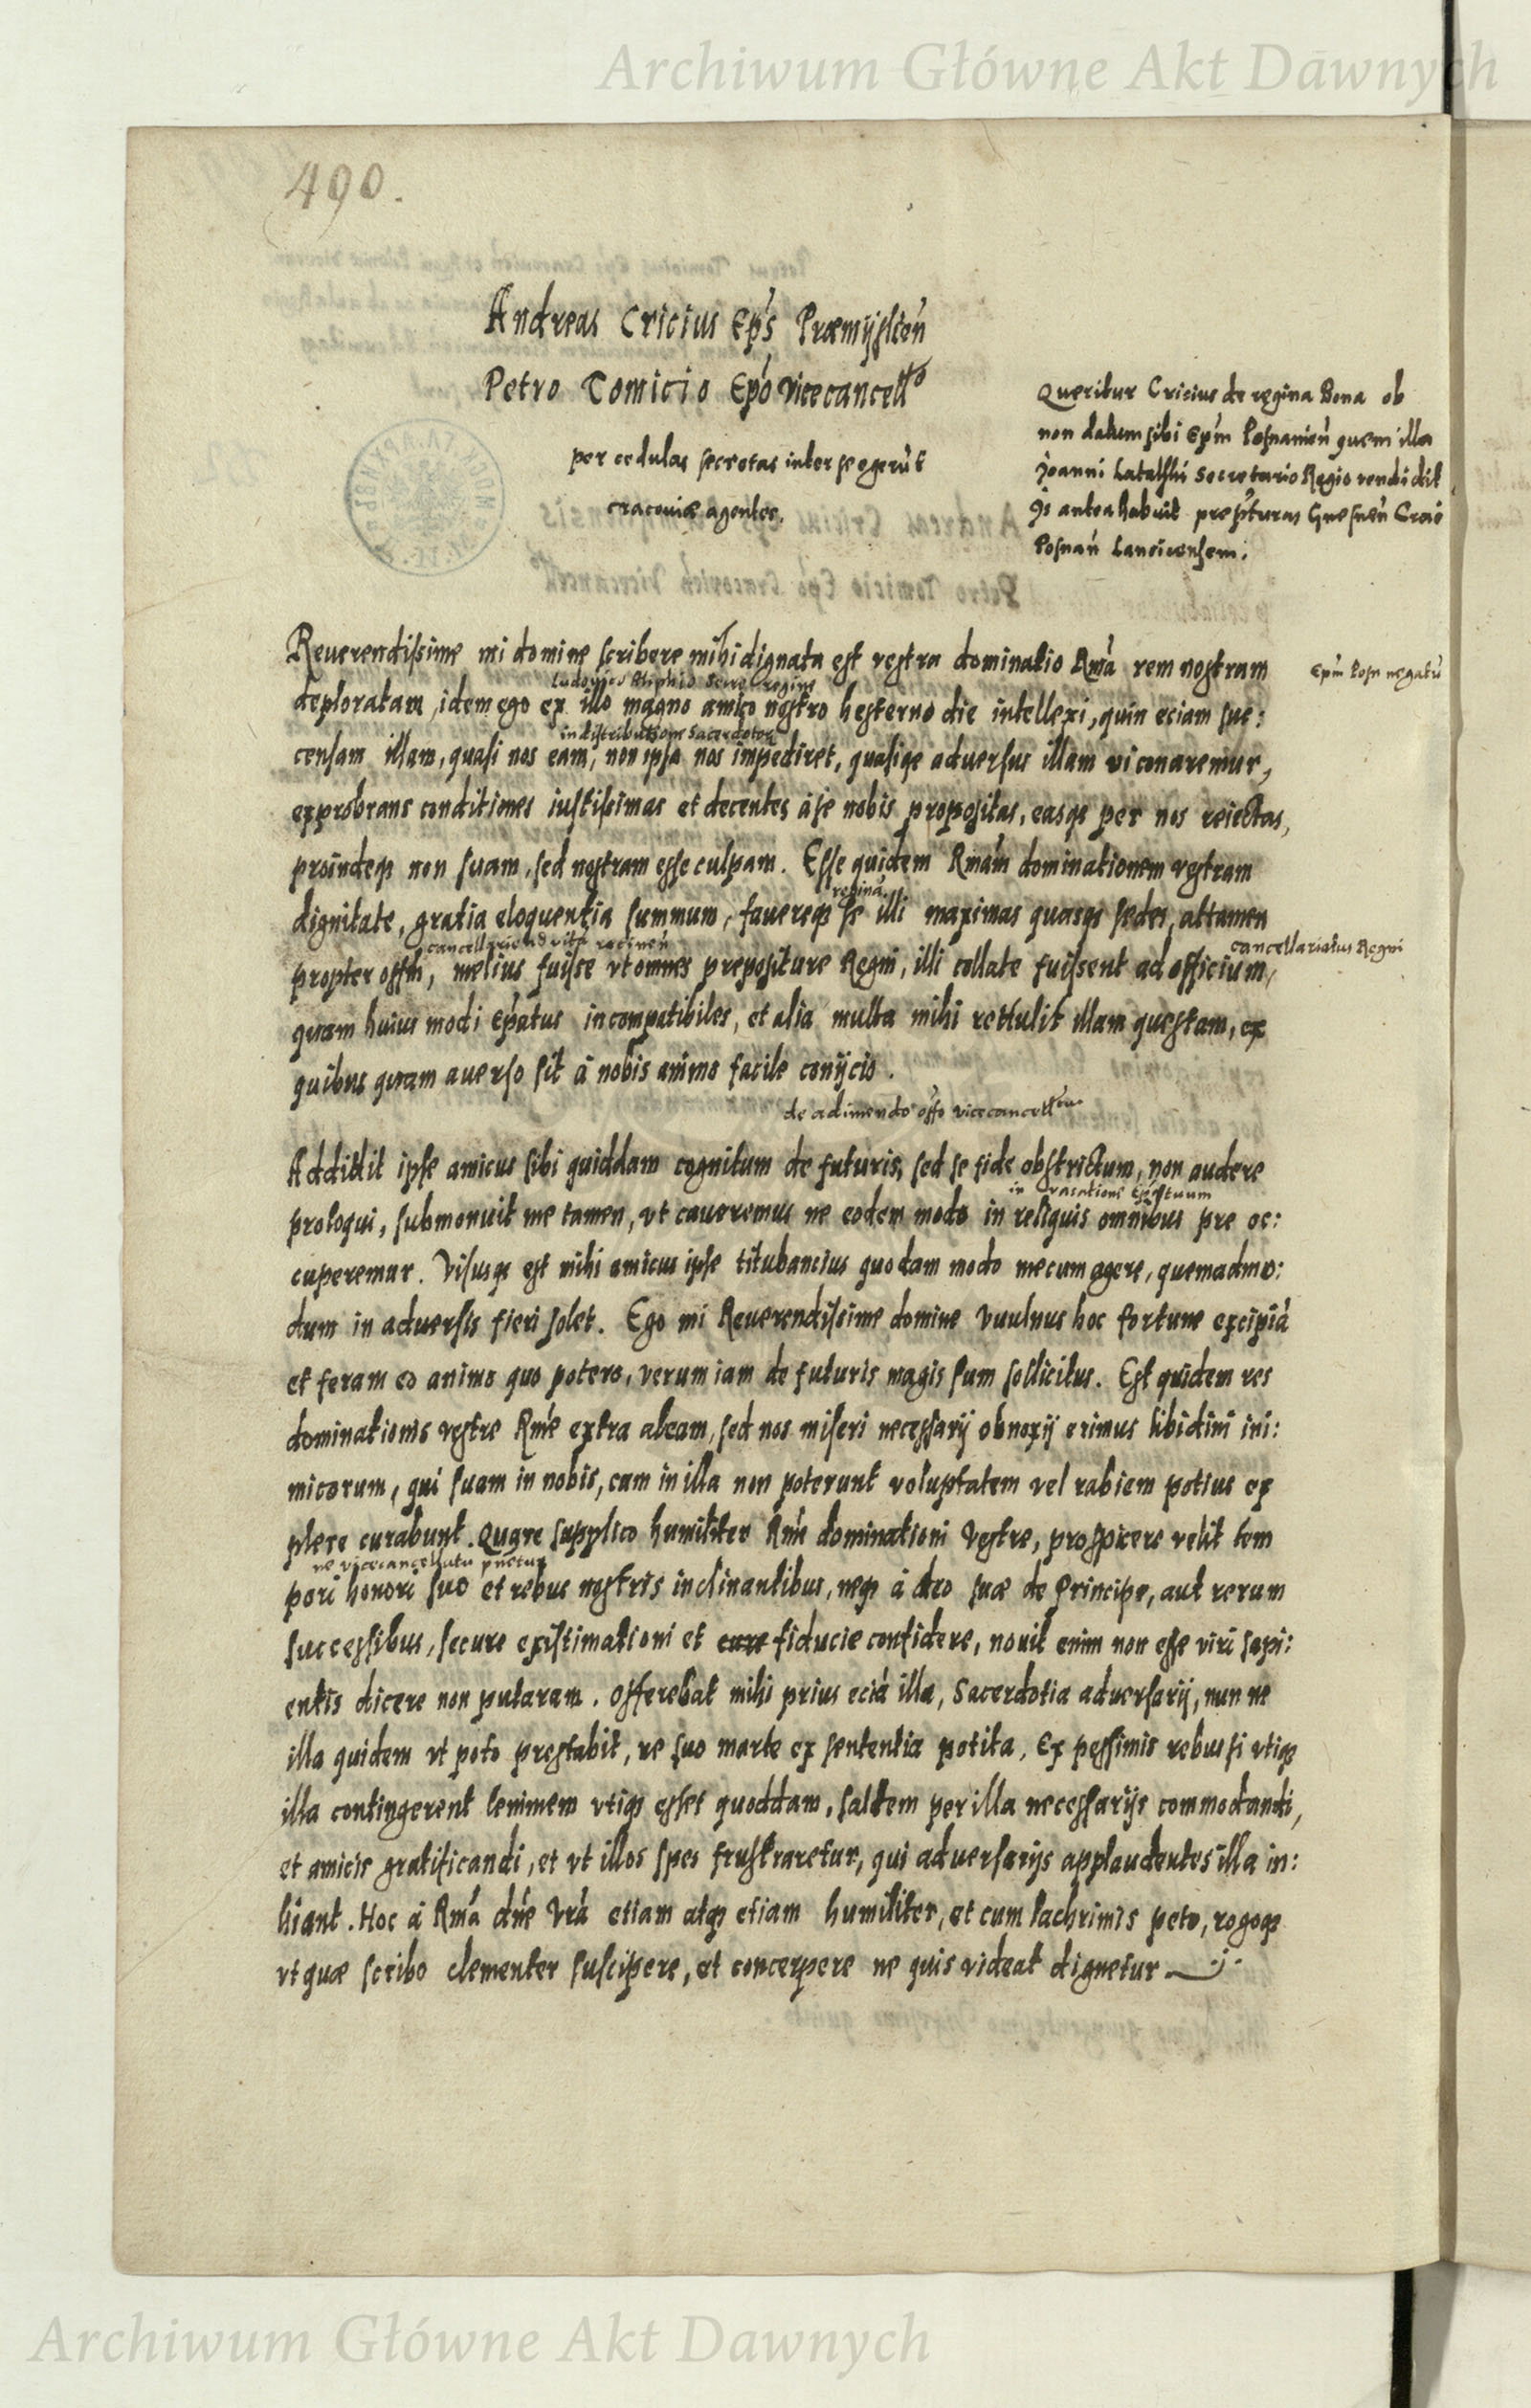 Archiwum Główne Akt Dawnych
490.
Andreas Cricius Ep̃s Præmyslień
Petro Tomicio Ep̃o Vicecancell⁰
per cedulas secretas inter se egerũt
cracoviæ agentes.
Queritur Cricius de regina Bona ob
non datum sibi Ep̃m Posnanień quem illa
Joanni Latalski Secretario Regio vendidit
Is antea habuit prep̃turas Gnesneñ Crac̃
Posnañ Lancicensem.
Reuerendissime mi domine scribere mihi dignata est vestra dominatio Rm̃a rem nostram
Ep̃m Posn negatũ
Ludovico Aliphio Secre regine
deploratam, idem ego ex illo magno amico nostro hesterno die intellexi, quin eciam suc:
in distributione Sacerdotior̃
censam illam, quasi nos eam, non ipsa nos impediret, quasiqe adversus illam vi conaremur,
exprobrans conditiones iustissimas et decentes à se nobis propositas, easqe per nos reiectas,
proindeqe non suam, sed nostram esse culpam. Esse quidem Rmãm dominationem vestram
regina
dignitate, gratia eloquentia summum, favereqe se illi maximas quasqe sedes, attamen
cancellariatus Regni
propter offm̃, melius fuisse vt omnes prepositure Regni, illi collate fuissent ad officium,
quam huius modi ep̃atus incompatibiles, et alia multa mihi rettulit illam questam, ex
quibus quam averso sit à nobis animo facile conijcio.
de adimendo off̃o vicecancell
Addidit ipse amicus sibi quiddam cognitum de futuris, sed se fide obstrictum, non audere
in vacatione Ep̃atuum
proloqui, submonuit me tamen, vt caveremus ne eodem modo in reliquis omnibus pre oc:
cuperemur. Visusqe est mihi amicus ipse titubancius quodam modo mecum agere, quemadmo:
dum in adversis fieri solet. Ego mi Reuerendissime domine vuulnus hoc fortune excipiã
et feram eo animo quo potero, verum iam de futuris magis sum sollicitus. Est quidem res
dominationis vestre Rmẽ extra aleam, sed nos miseri necessarij obnoxij erimus libidini ini:
micorum, qui suam in nobis, cum in illa non poterunt voluptatem vel rabiem potius ex
plere curabunt. Quare supplico humiliter Rmẽ dominationi Vestre, prospicere velit tem
ne vicecancellatu p̃netur
pori honori suo et rebus nostris inclinantibus, neqe à deo suæ de Principe, aut rerum
successibus, secure existimationi et fiducie confidere, novit enim non esse viri sapi:
entis dicere non putaram. Offerebat mihi prius eciã illa, Sacerdotia adversarij, nun ne
illa quidem vt puto prestabit, re suo marte ex sententia potita, Ex pessimis rebus si vtiqe
illa contingerent lenimem vtiqe esset quoddam, saltem per illa necessarijs commodandi,
et amicis gratificandi, et vt illos spes frustraretur, qui adversarijs applaudentes illa in:
hiant. Hoc à Rmã dñe Vrã etiam atqe etiam humiliter, et cum lachrimis peto, rogoqe
vt quæ scribo clementer suscipere, et concerpere ne quis videat dignetur
Archiwum Główne Akt Dawnych